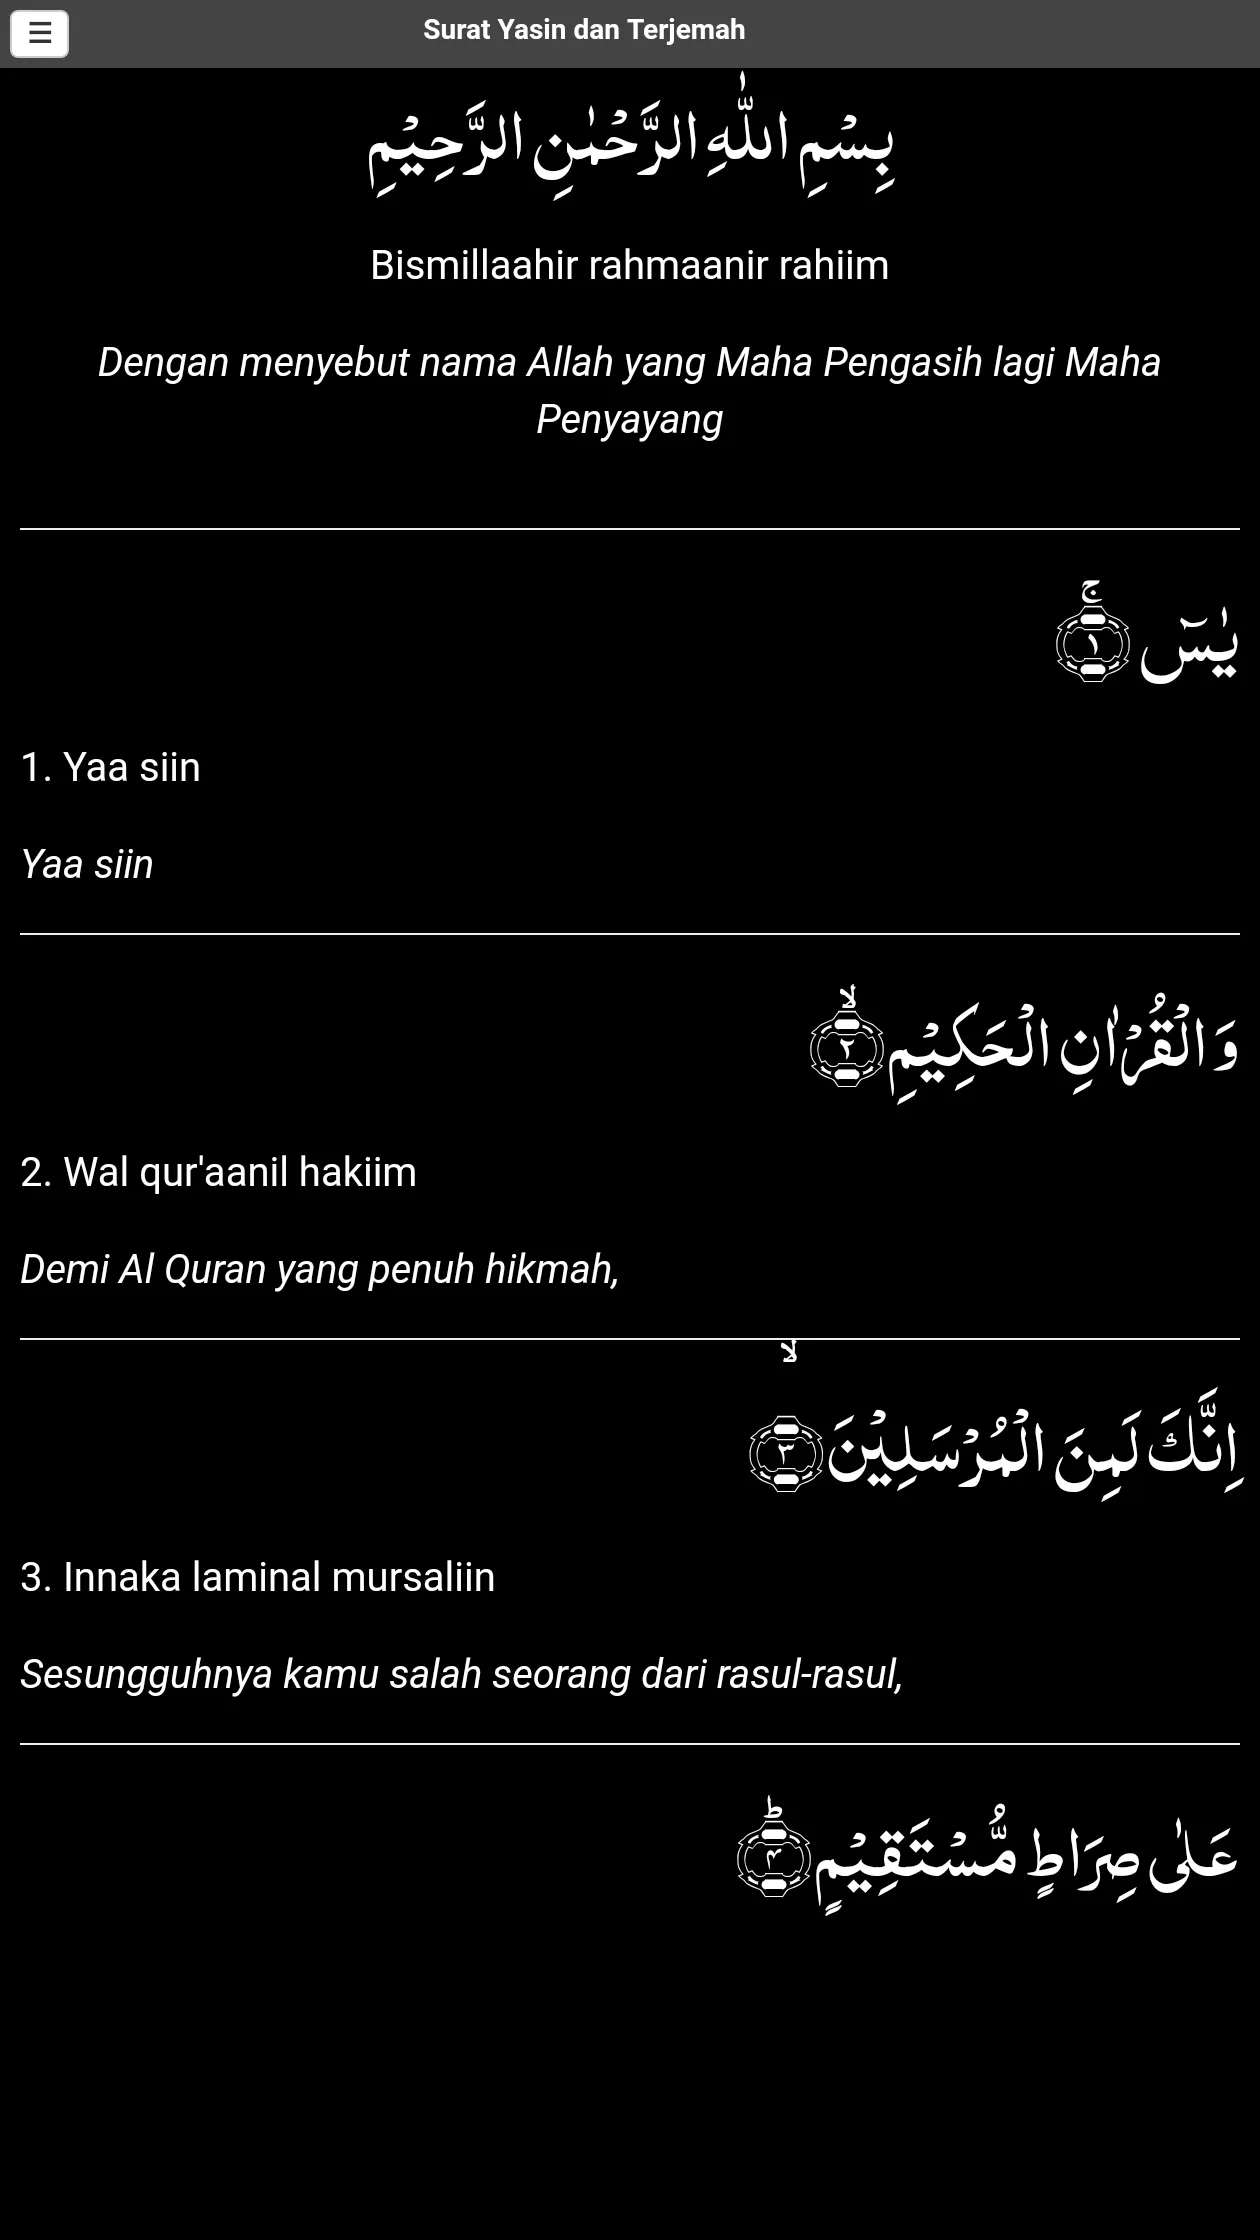 Surat Yasin dan Terjemah
بِسْمِ اللّٰهِ الرَّحْمٰنِ الرَّحِيْمِ
Bismillaahir rahmaanir rahiim
Dengan menyebut nama Allah yang Maha Pengasih lagi Maha
Penyayang
يٰسٓ ۚ ١
1. Yaa siin
Yaa siin
وَالْقُرْاٰنِ الْحَكِيْمِ ۙ ٢
2. Wal qur'aanil hakiim
Demi Al Quran yang penuh hikmah,
اِنَّكَ لَمِنَ الْمُرْسَلِيْنَ ۙ ٣
3. Innaka laminal mursaliin
Sesungguhnya kamu salah seorang dari rasul-rasul,
عَلٰى صِرَاطٍ مُّسْتَقِيْمٍ ؕ ۴